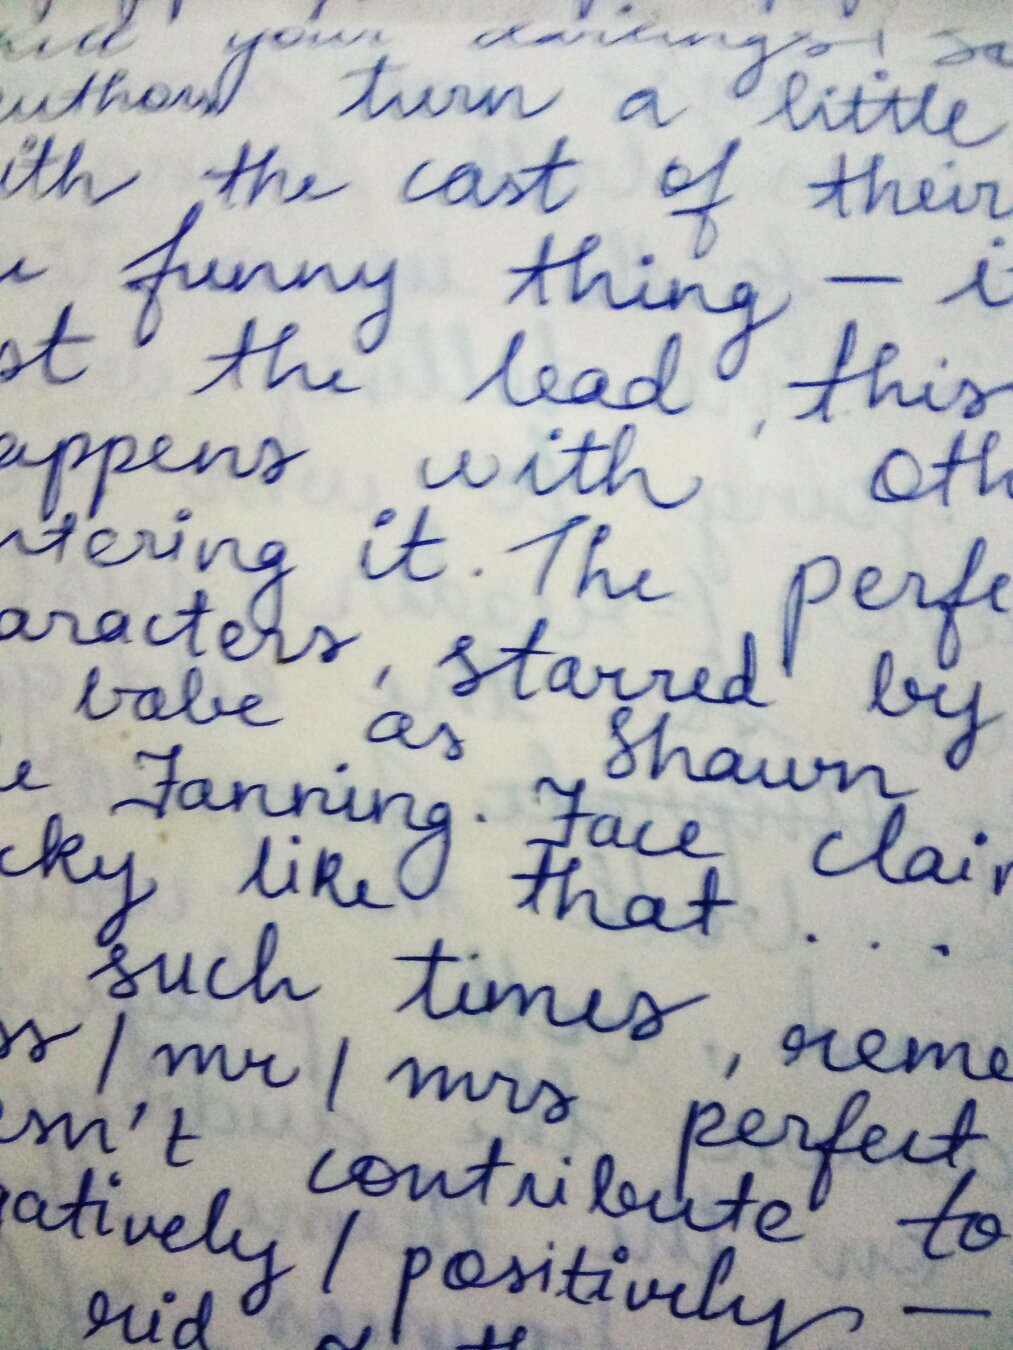 your darlings! sa
authors turn a little
ith the cast of their
funny thing — i
st the lead, this
appens with oth
ntering it. The perfe
aracters, starred by
babe as Shawn
e Fanning. Face clai
cky like that ...
such times, reme
ss / mr / mrs perfect
esn't contribute to
gatively / positively —
rid of th